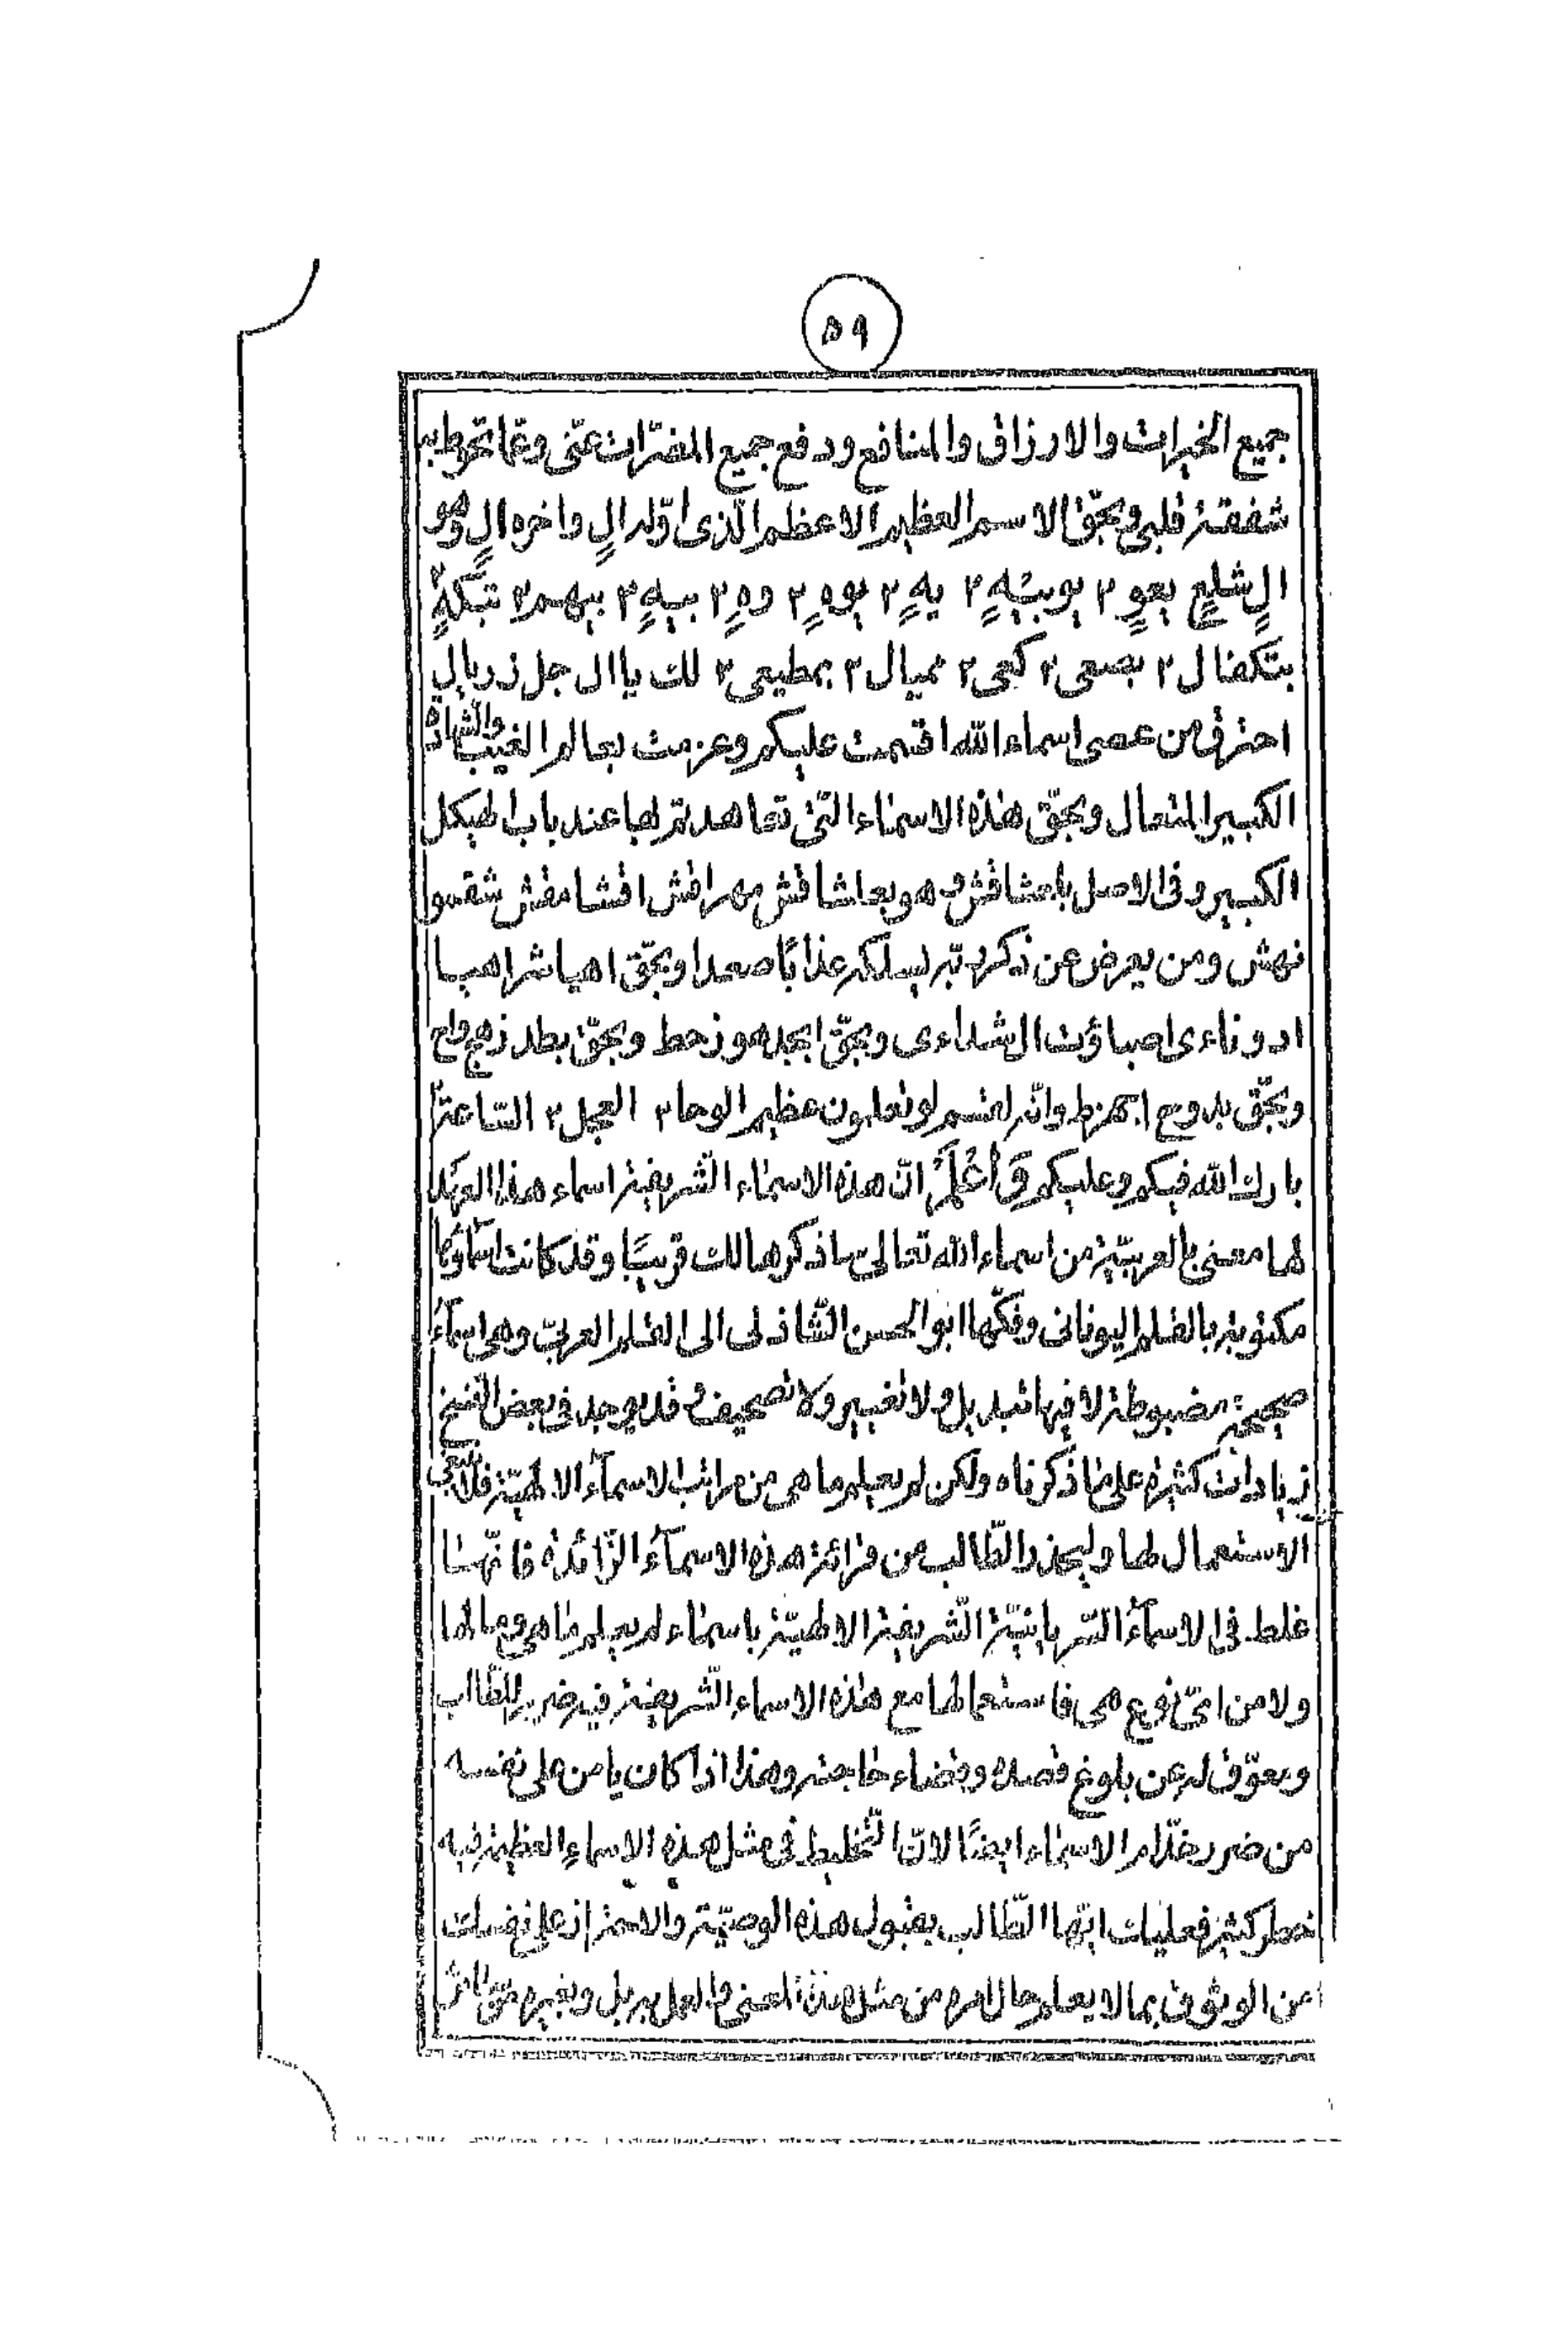 ٥٩
جميع الخيرات والارزاق والمنافع ودفع جميع المضرّات عنّى وعمّا تحوط به
شفقة قلبى وبحقّ الاسم العظيم الاعظم الّذى اوّله ال واخره ال وهو
ال شلع يعو ٢ يوبيه ٢ يه ٢ يوه ٢ وه ٢ بيه ٢ بيهم ٢ بتكه
بتكفال ٢ بصعى ٢ كعى ٢ ممیال ٢ بمطيعى ٢ لك يا ال جل زريال
احترق من عصى اسماء الله اقسمت عليكم وعزمت بعالم الغيب والشهادة
الكبير المتعال وبحقّ هذه الاسماء الّتى تعاهدتم بها عند باب الهيكل
الكبير وفى الاصل باعشاقش وهو بعلشاقش مهراقش اقشامقش شقمو
نهش ومن يعرض عن ذكر ربّه يسلكه عذابًا صعدا وبحقّ اهيا شراهيا
ادوناءى اصباؤت ال شداءى وبحقّ ابجد هوز حطى وبحقّ بطد زهج واح
وبحقّ بدوح اجهزط وانّه لقسم لو تعلمون عظيم الوحا ٢ العجل ٢ السّاعة
بارك الله فيكم وعليكم وَاعْلَمْ انّ هذه الاسماء الشّريفة اسماء هذا العهد
لها معنى بالعربيّة من اسماء الله تعالى ساذكرها لك قريبًا وقد كانت اسماؤها
مكتوبة بالقلم اليونانى وفكّها ابو الحسن الشّاذلى الى القلم العربىّ وهى اسماء
صحيحة مضبوطة لا فيها تبديل ولا تغيير ولا تصحيف وقد يوجد فى بعض النّسخ
زيادات كثيرة على ما ذكرناه ولكن لم يعلم ما هى من مراتب الاسماء الالهيّة فلا ينبغى
الاستعمال لها وليحذر الطّالب من قرائة هذه الاسماء الزّائدة فانّها
غلط فى الاسماء السّريانيّة الشّريفة الالهيّة باسماء لم يعلم ما هى وما لها
ولا من اىّ نوع هى فاستعمالها مع هذه الاسماء الشّريفة فيه ضرر للطّالب
ويعوّق له عن بلوغ قصده وقضاء حاجته وهذا اذا كان يامن على نفسه
من ضرر خدّام الاسماء ايضًا لانّ التّخليط فى مثل هذه الاسماء العظيمة فيه
خطر كثير فعليك ايّها الطّالب بقبول هذه الوصيّة والاحتراز على نفسك
من الوثوق بما لا يعلم حاله من مثل هذا المعنى والعمل به بل وبغيره حتّى